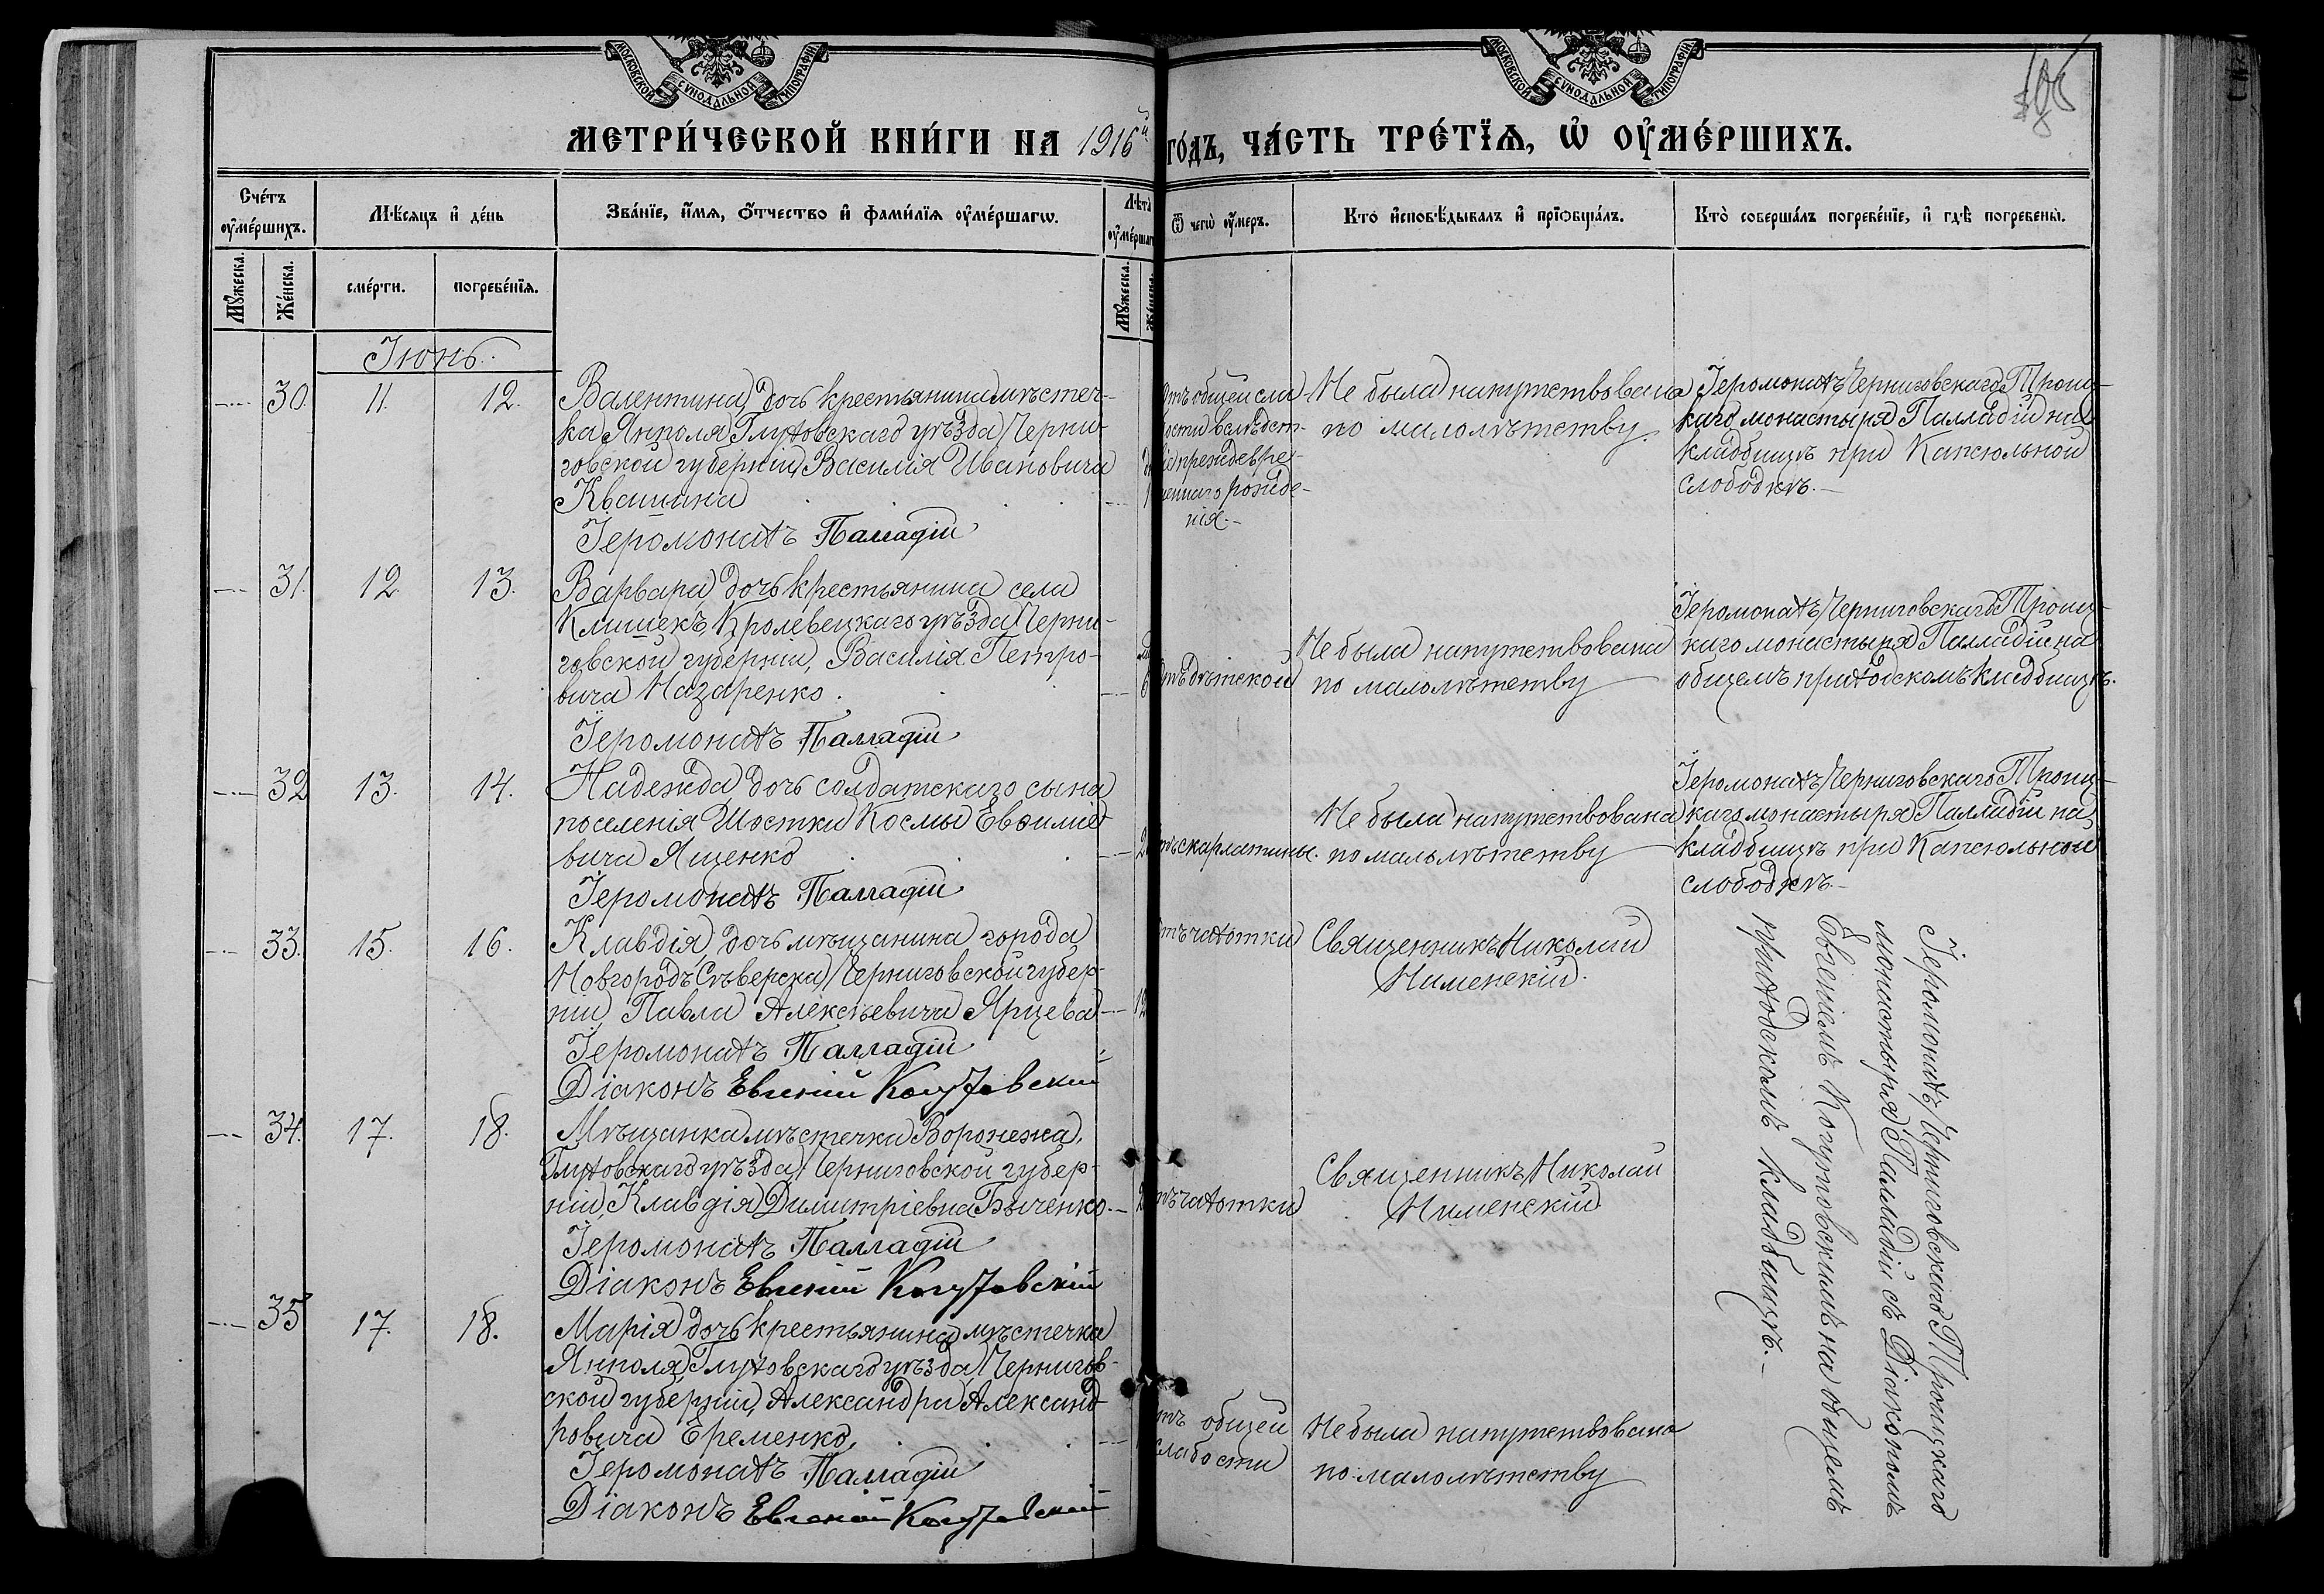 МОСКОВСКОЙ СѴНОДАЛЬНОЙ ТИПОГРАФІИ
МОСКОВСКОЙ СѴНОДАЛЬНОЙ ТИПОГРАФІИ
МЕТРИ́ЧЕСКОЙ КНИ́ГИ НА 1916й
го́дъ, ЧА́СТЬ ТРЕ́ТІѦ, Ѡ҆ ОУ҆МЕ́РШИХЪ.
Сче́тъ оу҆ме́ршихъ.
Мѣ́сяцъ и҆ де́нь
Зва́нїе, и҆́мя, ѻ҆́тчество и҆ фами́лїя оу҆ме́ршагѡ.
Лѣта̀ оу҆ме́ршаг
Ѿ чегѡ̀ оу҆́меръ.
Кто̀ и҆сповѣ́дывалъ и҆ прїѡбща́лъ.
Кто̀ соверша́лъ погребе́нїе, и҆ гдѣ̀ погребены̀.
Мꙋ́жеска.
Же́нска.
сме́рти.
погребе́нїя.
Мꙋ́жеска.
Іюнь.
30. 11. 12.
Валентина, дочь крестьянина мѣстеч-
ка Янполя, Глуховскаго уѣзда, Черни-
говской губерніи, Василія Ивановича
Квашина
Іеромонахъ Палладій
отъ общей сла-
бости вслѣдст-
преждевре-
меннаго рожде-
нія.-
Не была напутствована
по малолѣтству.
Іеромонахъ Черниговскаго Троиц-
каго монастыря Палладій на
кладбищѣ при Капсюльной
слободкѣ.-
31. 12. 13.
Варвара, дочь крестьянина села
Клишекъ, Кролевецкаго уѣзда, Черни-
говской губерніи, Василія Петро-
вича Назаренко.
Іеромонахъ Палладій
отъ дѣтской
Не была напутствована
по малолѣтству
Іеромонахъ Черниговскаго Троиц-
каго монастыря Палладій на
общемъ приходскомъ кладбищѣ.
32 13. 14.
Надежда, дочь солдатскаго сына
поселенія Шостки Космы Евѳиміе-
вича Яценко
Іеромонахъ Палладій
отъ скарлатины.
Не была напутствована
по малолѣтству
Іеромонахъ Черниговскаго Троиц-
каго монастыря Палладій на
кладбищѣ при Капсюльной
слободкѣ.-
33. 15. 16.
Клавдія, дочь мѣщанина города
Новгородъ Сѣверска, Черниговской губер-
ніи, Павла Алексѣевича Ярцева 12
Іеромонахъ Палладій
Діаконъ Евгеній
отъ чахотки
Священникъ Николай
Нименскій.
Іеромонахъ Черниговскаго Троицкаго
монастыря Палладій съ Діакономъ
Евгеніемъ на общемъ
приходскомъ кладбищѣ.-
34. 17. 18.
Мѣщанка мѣстечка Воронежа,
Глуховскаго уѣзда, Черниговской губер-
ніи, Клавдія Димитріевна Быченко.
Іеромонахъ Палладій
Діаконъ Евгеній
отъ чахотки
Священникъ Николай
Нименскій.
35 17. 18.
Марія, дочь крестьянина мѣстечка
Янполя, Глуховскаго уѣзда, Чернигов-
ской губерніи, Александра Александ-
ровича Еременко.
Іеромонахъ Палладій
Діаконъ Евгеній
отъ общей
слабости
Не была напутствована
по малолѣтству